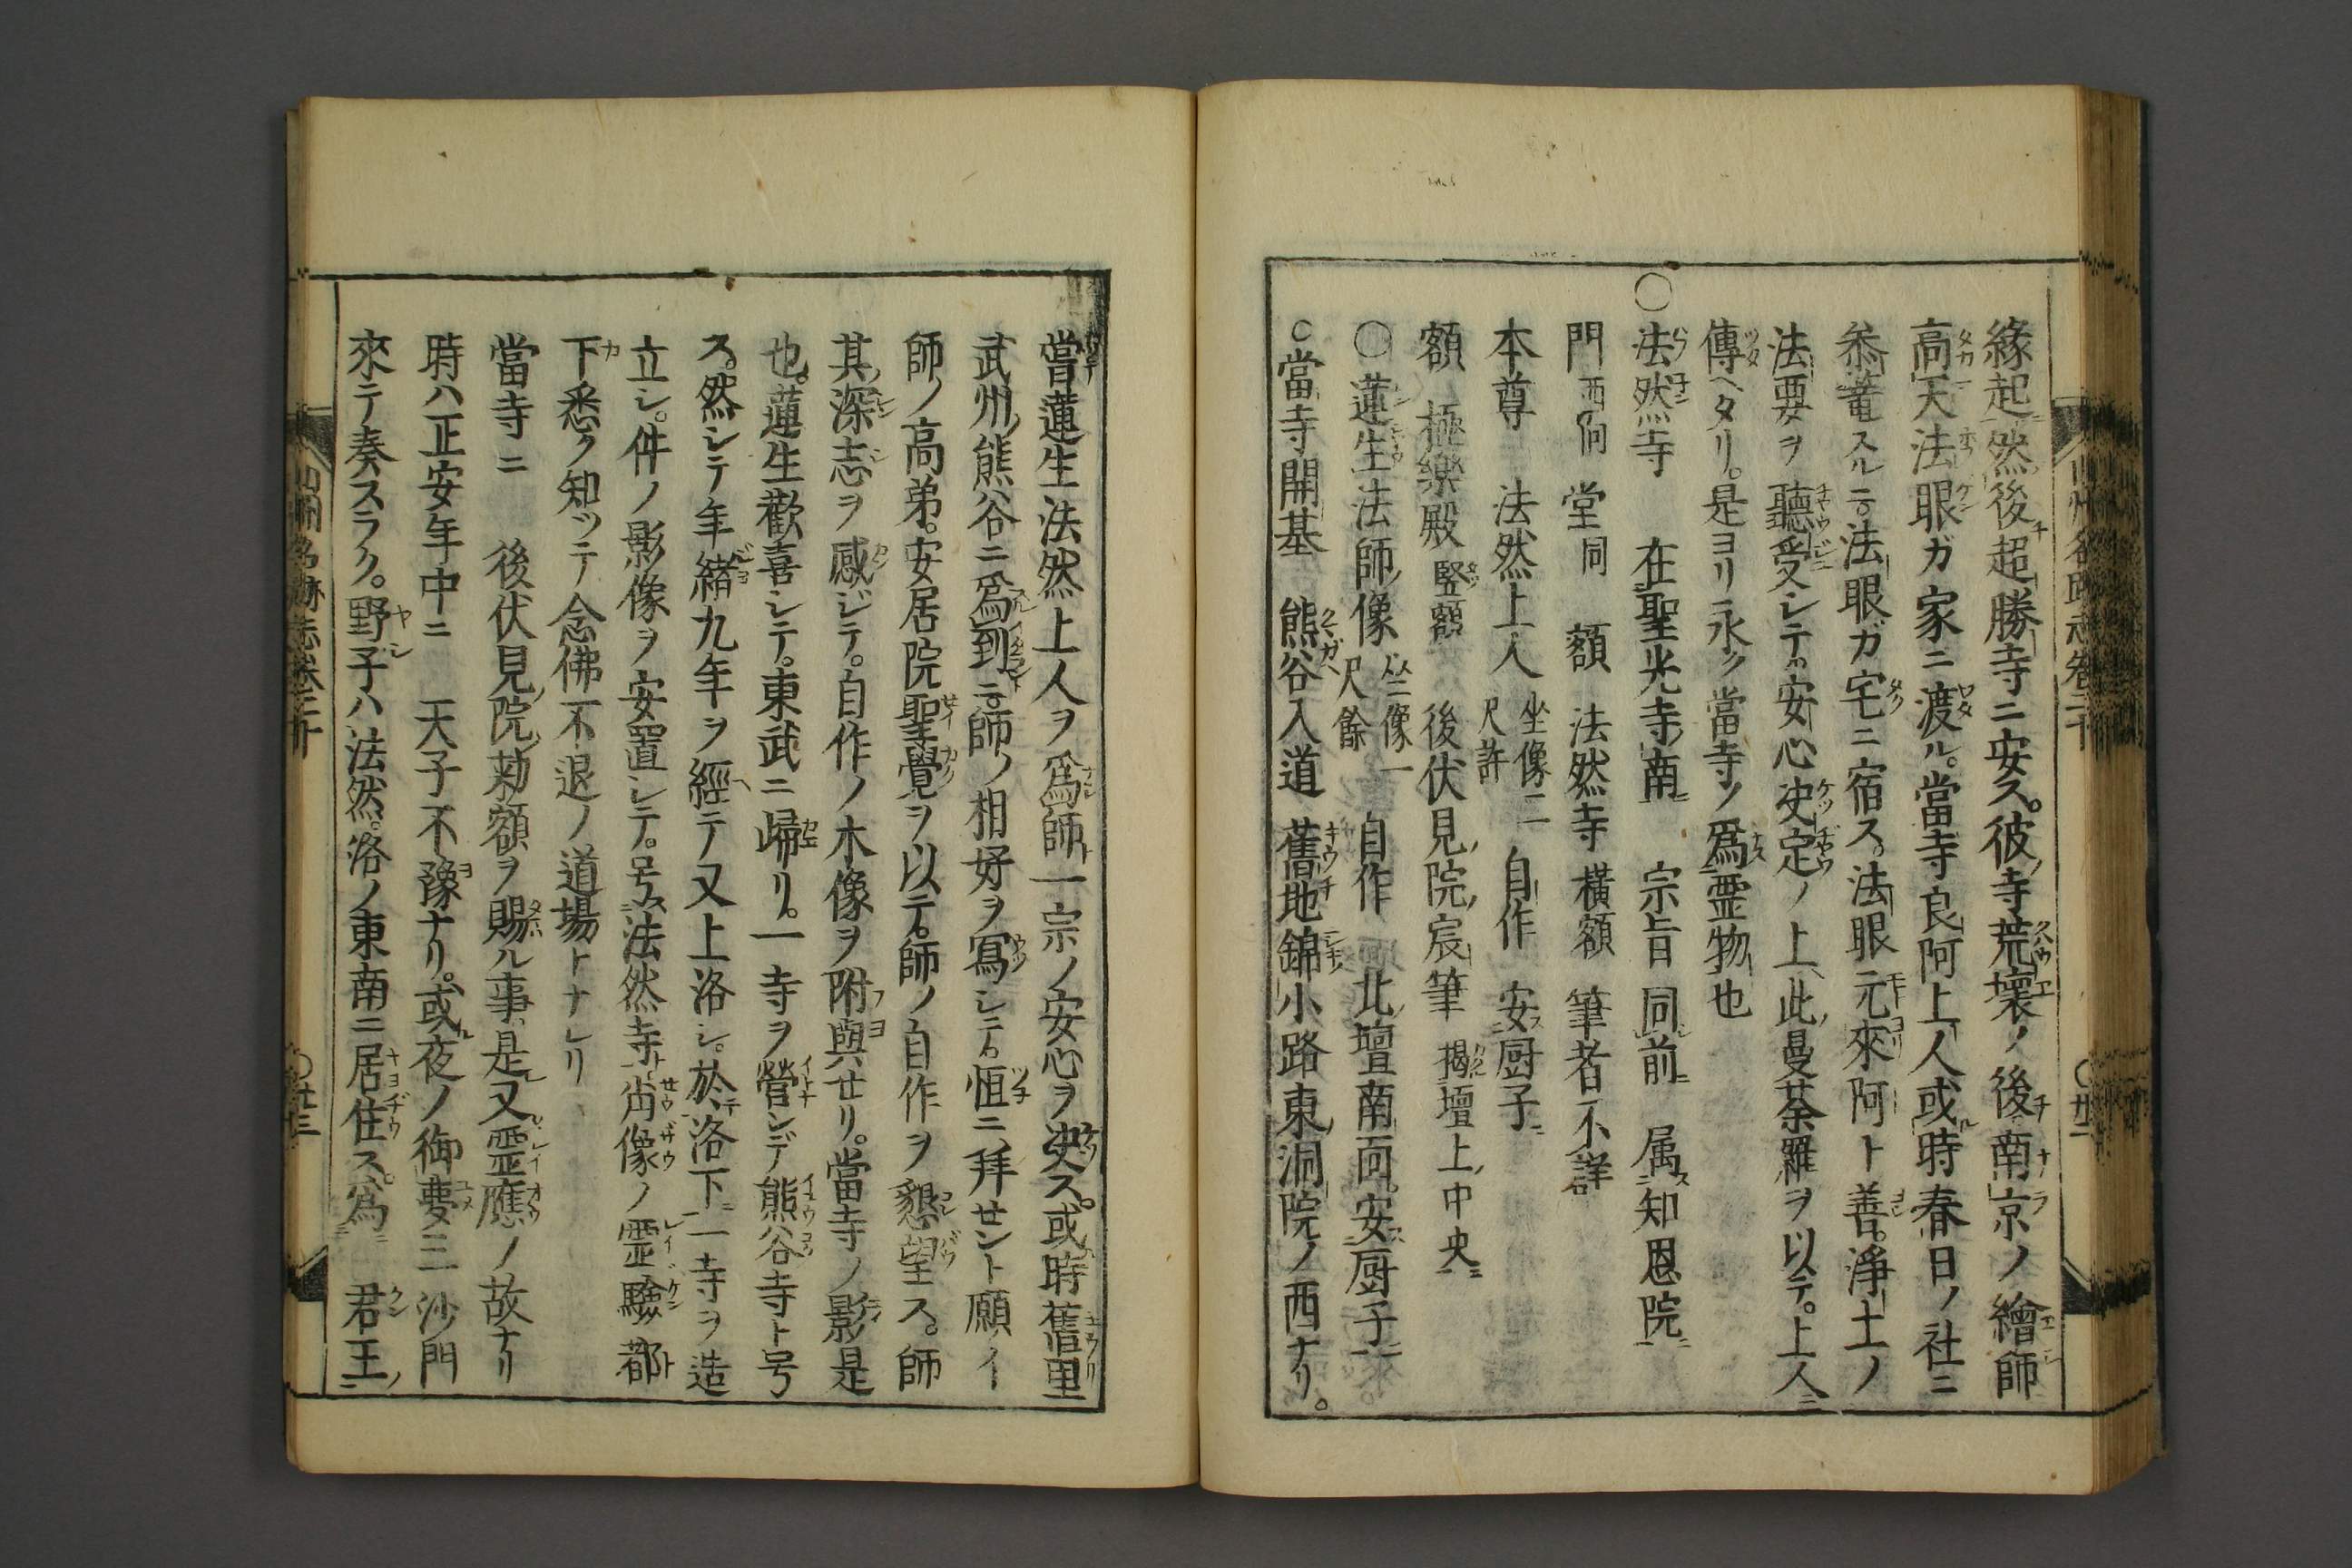 縁起然後超勝寺ニ安ス。彼寺荒壊ノ後南京ノ繪師
高天法眼ガ家ニ渡ル。當寺良阿上人或時春日ノ社ニ
参篭スルニ法眼ガ宅ニ宿ス。法眼元來阿ト善。淨土ノ
法要ヲ聽受シテ安心决定ノ上此曼荼羅ヲ以テ。上人
傳ヘタリ。是ヨリ永ク當寺ノ爲霊物也
○法然寺 在聖光寺南 宗旨同前 属知恩院
門 西向 堂 同 額 法然寺 横額 筆者不詳
本尊 法然上人 坐像二尺許 自作 安厨子
額 極樂殿 竪額 後伏見院宸筆 揭壇上中央
○蓮生法師像 坐像一尺餘 自作 北壇南面安厨子
○當寺開基 熊谷入道 舊地錦小路東洞院ノ西ナリ。
嘗蓮生法然上人ヲ爲師一宗ノ安心ヲ决ス。或時舊里
武州熊谷ニ爲到師ノ相好ヲ冩シテ恒ニ拜セント願イ
師ノ高弟。安居院聖覺ヲ以テ。師ノ自作ヲ懇望ス。師
其深志ヲ感ジテ。自作ノ木像ヲ附與セリ。當寺ノ影是
也。蓮生歡喜シテ。東武ニ帰リ。一寺ヲ營ンデ熊谷寺ト号
ス。然シテ年緒九年ヲ經テ又上洛シ。於洛下一寺ヲ造
立シ。件ノ影像ヲ安置シテ。号法然寺肖像ノ霊驗都
下悉ク知ッテ念佛不退ノ道場トナレリ
當寺ニ 後伏見院勅額ヲ賜ル事是又霊應ノ故ナリ
時ハ正安年中ニ 天子不豫ナリ。或夜ノ御夢ニ沙門
來テ奏スラク。野子ハ法然。洛ノ東南ニ居住ス。爲 君王
山州名跡志卷二十 ○廿二
山州名跡志卷二十 ○廿三